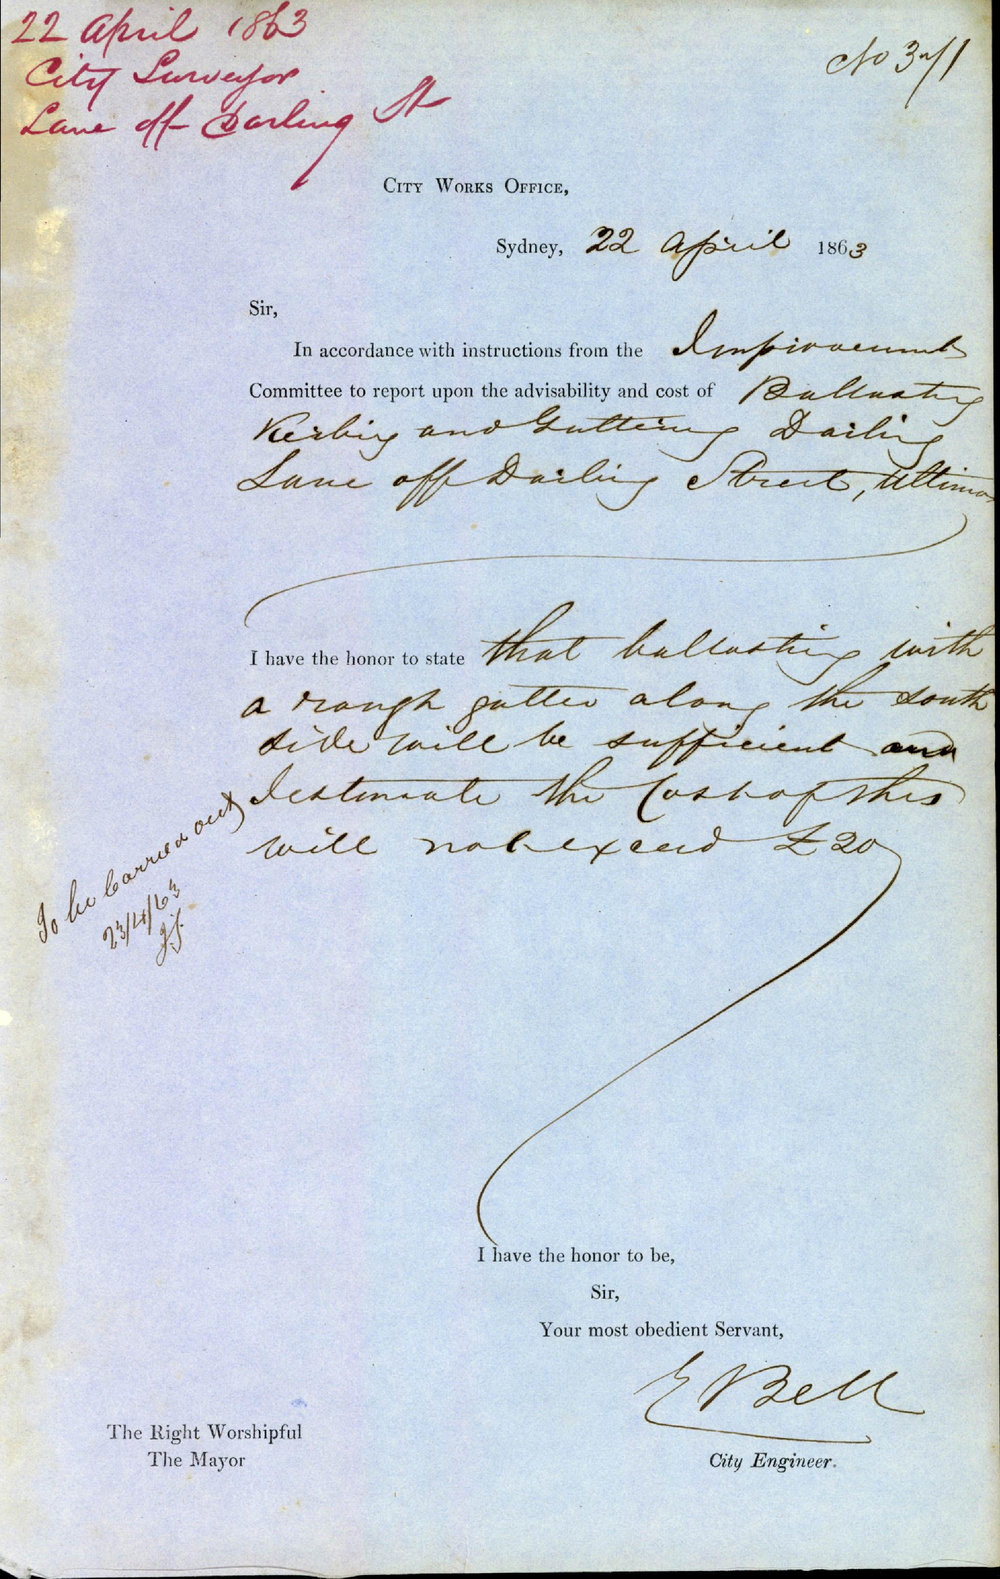 22 April 1863
City Surveyor
Lane off Darling St
No 371
City Works Office,
Sydney, 22 April 1863
Sir,
In accordance with instructions from the Improvement
Committee to report upon the advisability and cost of Ballasting
Kerbing and Guttering Darling
Lane off Darling Street, Ultimo
I have the honor to state that ballasting with
a rough gutter along the south
side will be sufficient and
I estimate the Cost of this
will not exceed £20
To be Carried out
23/4/63
I have the honor to be,
Sir,
Your most obedient Servant,
E Bell
City Engineer.
The Right Worshipful
The Mayor